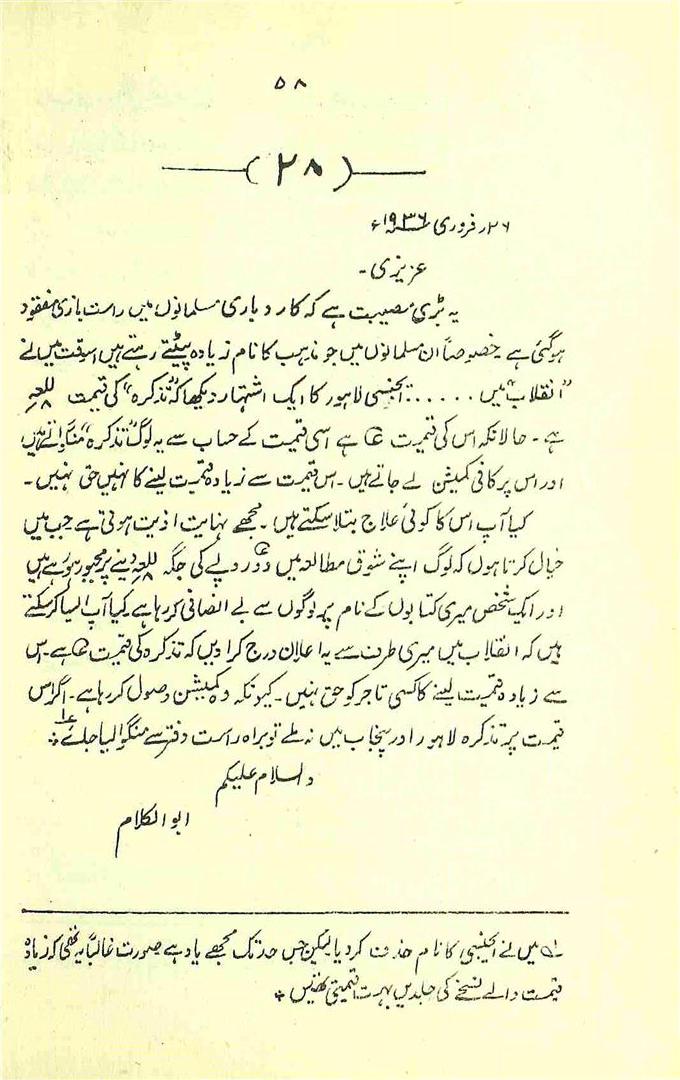 ۵۸
(۲۸)
۲۶ر فروری ۱۹۳۶ء
عزیزی۔
یہ بڑی مصیبت ہے کہ کاروباری مسلمانوں میں راست بازی مفقود
ہوگئی ہے خصوصاً ان مسلمانوں میں جو مذہب کا نام زیادہ پیٹتے رہتے ہیں اسوقت میں نے
"انقلاب" میں ...... ایجنسی لاہور کا ایک اشتہار دیکھا کہ "تذکرہ" کی قیمت
ہے۔ حالانکہ اس کی قیمت ہے اسی قیمت کے حساب سے یہ لوگ "تذکرہ" منگواتے ہیں
اور اس پر کافی کمیشن لے جاتے ہیں۔ اس قیمت سے زیادہ قیمت لینے کا انہیں حق نہیں۔
کیا آپ اس کا کوئی علاج بتلا سکتے ہیں۔ مجھے نہایت اذیت ہوتی ہے جب میں
خیال کرتا ہوں کہ لوگ اپنے شوق مطالعہ میں دو روپے کی جگہ دینے پر مجبور ہو رہے ہیں
اور ایک شخص میری کتابوں کے نام پر لوگوں سے بے انصافی کر رہا ہے کیا آپ ایسا کر سکتے
ہیں کہ انقلاب میں میری طرف سے یہ اعلان درج کرا دیں کہ تذکرہ کی قیمت ہے۔ اس
سے زیادہ قیمت لینے کا کسی تاجر کو حق نہیں۔ کیونکہ وہ کمیشن وصول کر رہا ہے۔ اگر اس
قیمت پر تذکرہ لاہور اور پنجاب میں نہ ملے تو براہ راست دفتر سے منگوا لیا جائے ؎۱
والسلام علیکم
ابوالکلام
؎۱ میں نے ایجنسی کا نام حذف کر دیا لیکن جس حد تک مجھے یاد ہے صورت غالباً یہ تھی کہ زیادہ
قیمت والے نسخے کی جلدیں بہت قیمتی تھیں